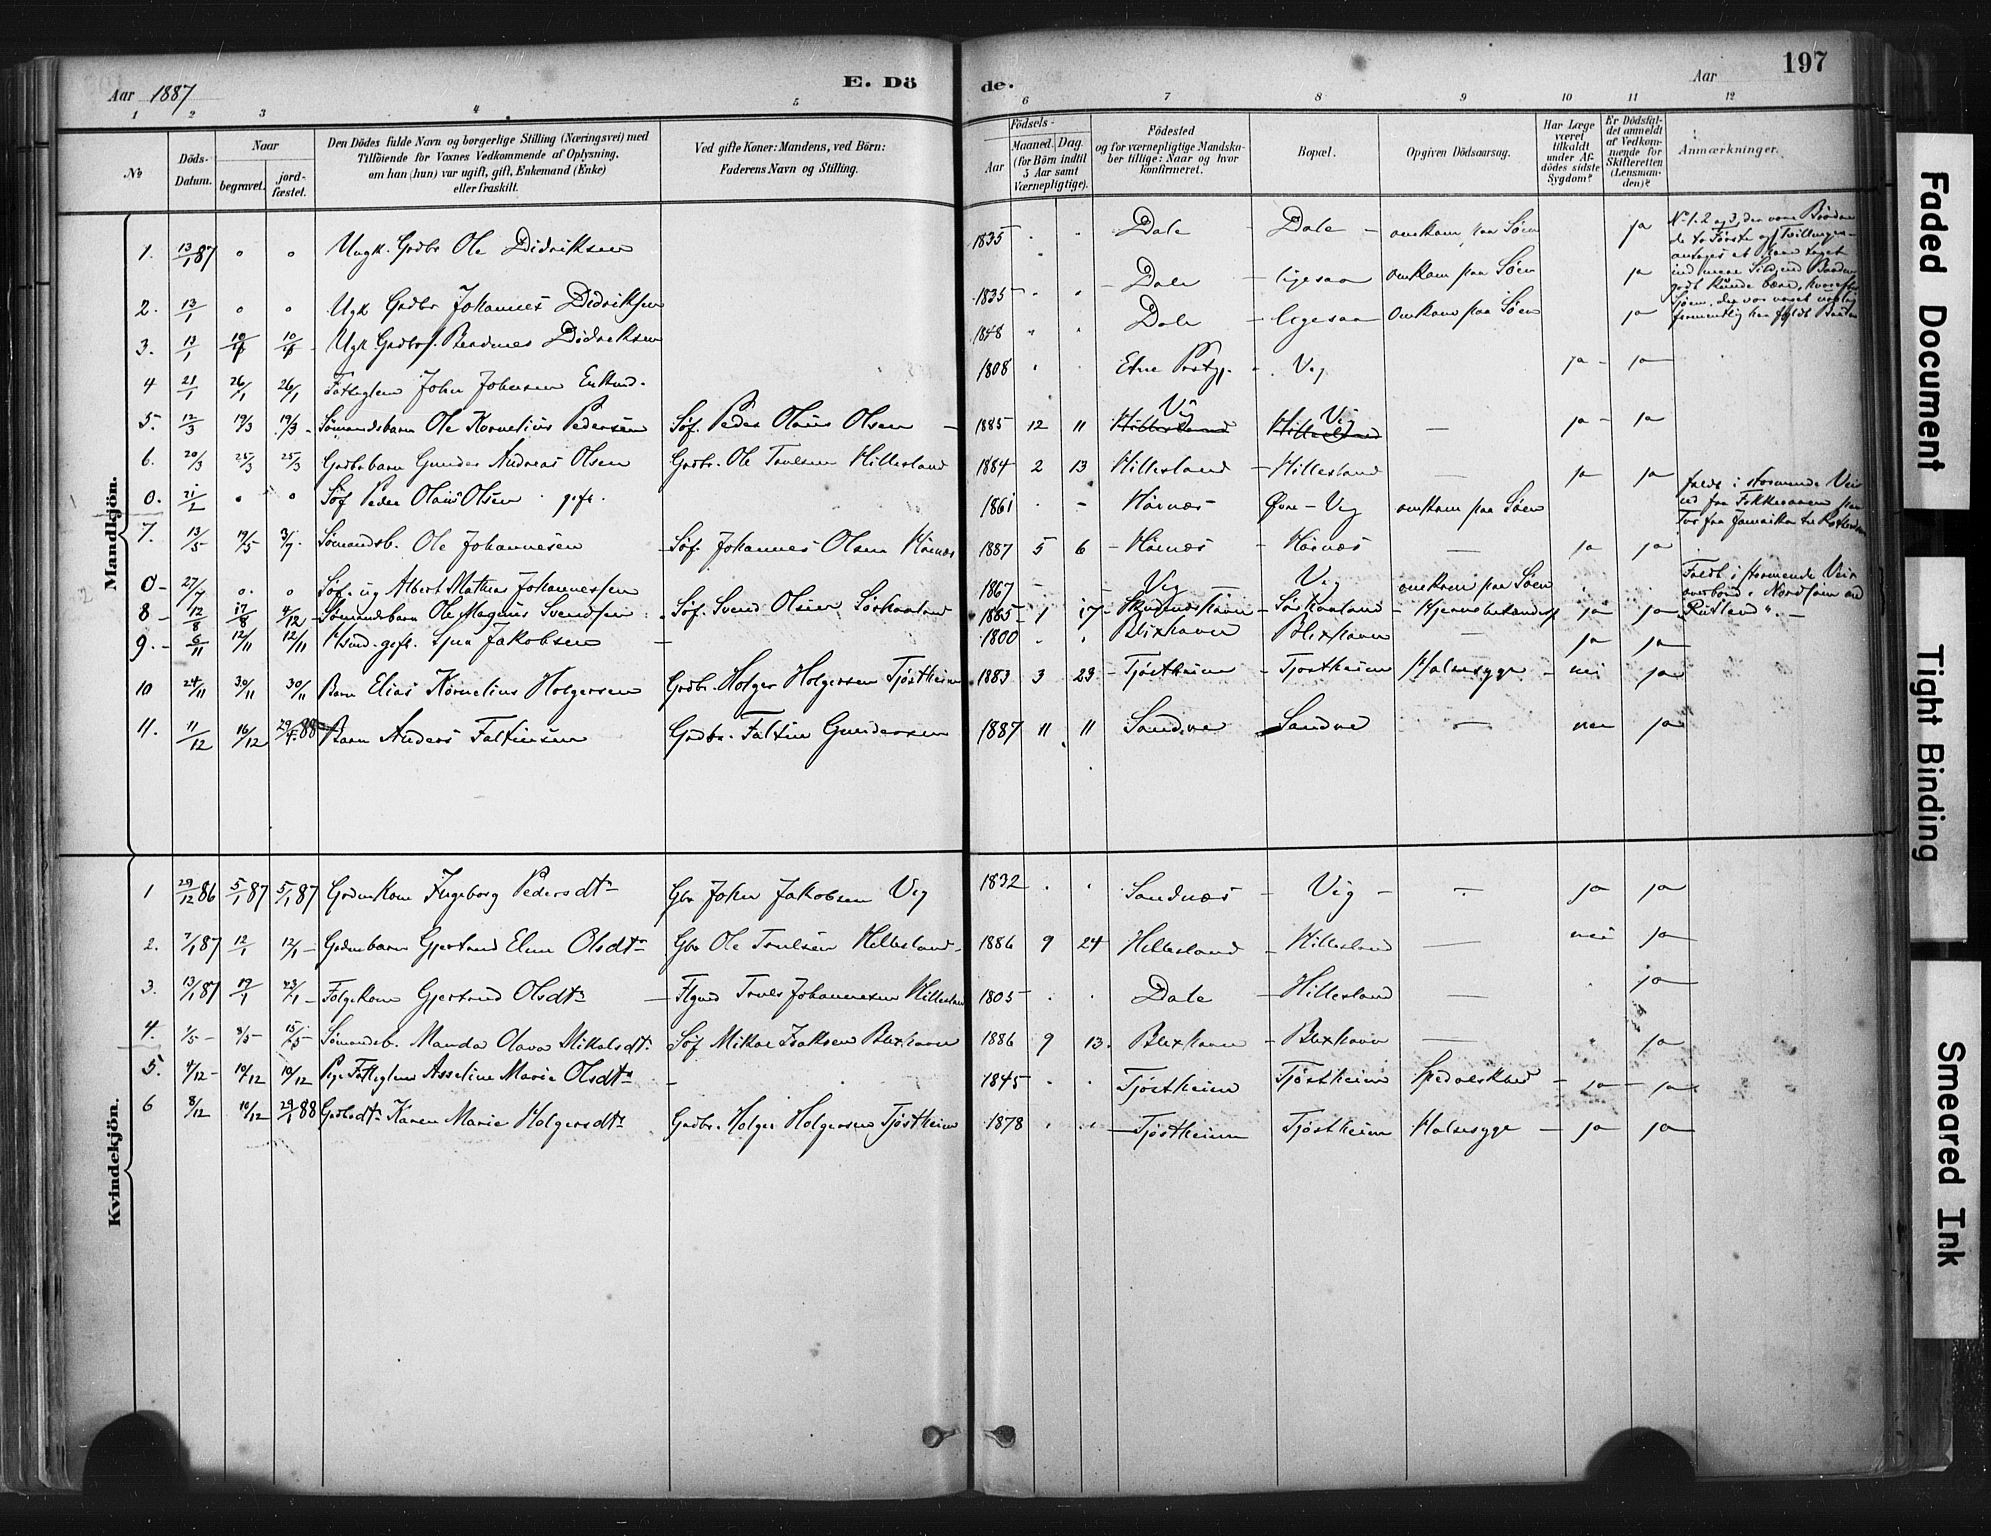 Aar 1887
E. Dö
de.
Aar
197
1 2 3 4 5 6 7 8 9 10 11 12
No
Döds-
Datum.
Naar
begravet.
jord-
fæstet.
Den Dödes fulde Navn og borgerlige Stilling (Næringsvei) med
Tilföiende for Voxnes Vedkommende af Oplysning,
om han (hun) var ugift, gift, Enkemand (Enke)
eller fraskilt.
Ved gifte Koner: Mandens, ved Börn:
Faderens Navn og Stilling.
Födsels-
Aar
Maaned. Dag.
(for Börn indtil
5 Aar samt
Værnepligtige).
Födested
og for værnepligtige Mandska-
ber tillige: Naar og hvor
konfirmeret.
Bopæl.
Opgiven Dödsaarsag.
Har Læge
været
tilkaldt
under Af-
dödes sidste
Sygdom?
Er Dödsfal-
det anmeldt
af Vedkom-
mende for
Skifteretten
(Lensman-
den)?
Anmærkninger.
Mandkjön.
1. 13/1 87 " " Ungk. Grdbr Ole Didriksen 1835 " " Dale - Dale - omkom paa Søen ja
2. 13/1 " " Ugk Grdbr Johannes Didriksen 1835 " " Dale - ligesaa omkom paa Søen ja
3. 13/1 10/ 10/ Ugk. Didriksen 1848 " " Dale - ligesaa omkom paa Søen ja
No 1. 2 og 3, der vare Brødre
de to Første og Tvillinger
antages at have taget
ind mere Sild end Baaden
godt kunde bære, hvorefter
Sjøen, der var
har fyldt Baaden
4 21/1 26/1 26/1 John Johnsen Enkmd. 1808 " " Etne Prstgj. - Vig ja - ja
5. 12/3 19/3 19/3 Sømandsbarn Ole Kornelius Pedersen Søf. Peder Olaus Olsen 1885 12 11 Hillesland Vig Hillesland Vig — ja - ja
6. 20/3 25/3 25/3 Grdbrbarn Gunder Andreas Olsen Grdbr. Ole Trulsen Hillesland 1884 2 13 Hillesland - Hillesland — ja ja
0. 21/2 " " Søf Peder Olaus Olsen gift. 1861 - Hørnæs - Øvre-Vig omkom paa Søen
faldt i stormende Veir
ned fra Fokkeraaen paa
fra Jamaika til
7. 13/5 19/5 3/7 Sømandsb. Ole Johannesen - Søf. Johannes Olsen Hørnæs 1887 5 6 - Hørnæs - Hørnæs — ja ja
0 - 27/7 " " Søf. ug Albert Mathia Johannessen 1867 - - Vig - Vig omkom paa Søen
Faldt i stormende Veir
overbord i Nordsjøen
"Rutland". -
8 - 12/8 17/8 4/12 - Sømandsbarn Ole Magnus Svendsen - Søf. Svend Olsen Sørhaaland 1885 - 1 17 - Skudeneshavn - Sørhaaland - Hjernebetændelse ja - ja
9. - 6/11 12/11 12/11 gift. Jakobsen — 1800 " " Blixhavn Blixhavn — ja ja
10 24/11 30/11 30/11 Barn Elias Kornelius Holgersen Grdbr. Holger Holgersen Tjøstheim 1883 3 23 - Tjøstheim - Tjøstheim Halsesyge - nei ja
11. 11/12 16/12 29/1 88 Barn Anders Faltinsen Grdbr. Faltin Gundersen 1887 11 11 Sandve Sandve — nei ja
Kvindekjön.
1 29/12 86 5/1 87 5/1 87 Grdmkone Ingeborg Pedersdtr Gbr John Jakobsen Vig 1832 " " Sandnæs - Vig - — ja ja
2. 7/1 87 12/1 12/1 - Grdmbarn Gjertrud Elene Olsdtr Gbr Ole Trulsen Hillesland 1886 9 24 Hillesland - Hillesland — nei ja
3. 13/1 87 17/1 23/1 - Folgekone Gjertrud Olsdtr — Truls Johannesen Hillesland 1805 " " Dale - Hillesland — ja
4. 1/5 - 8/5 - 15/5 - Sømandsb. Manda Olava Mikalsdtr Søf Mikal Isaksen Blixhavn 1886 9 13. Blixhavn - Blixhavn — " ja
5. 4/12 - 10/12 10/12 Pige Asseline Marie Olsdtr — 1845 " " Tjøstheim Tjøstheim Spedalskhed - ja - ja
6 8/12 10/12 29/1 88 Grdbrdtr Karen Marie Holgersdtr Grdbr. Holger Holgersen Tjøstheim 1878 " " Tjøstheim Tjøstheim Halsesyge - ja ja
Faded Document
Tight Binding
Smeared Ink